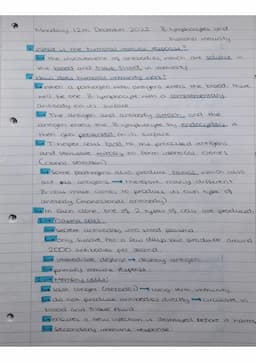 Monday 12th December 2022 B-lymphocytes and
humoral immunity
What is the humoral immune response?
the involvement of antibodies, which are soluble in
the blood and tissue fluid in immunity
How does humoral immunity work?
when a pathogen with antigens enters the blood, there
will be one B-lymphocyte with a complementary
antibody on its surface
The antigen and antibody attach, and the
antigen enters the B-lymphocyte by endocytosis, it
then gets presented on its surface
T-helper cells bind to the processed antigens
and stimulate mitosis to form identical clones
(clonal selection)
Some pathogens also produce toxins, which also
act as antigens → therefore many different
B-cells make clones to produce its own type of
antibody (monoclonal antibody)
In each clone, one of 2 types of cells are produced
1. Plasma cells:
secrete antibodies into blood plasma
only survive for a few days, but produce around
2000 antibodies per second
immediate defence → destroy antigens
primary immune response
2. Memory cells:
→ long term immunity
do not produce antibodies directly → circulate in
blood and tissue fluid
ensures a new infection is destroyed before it harms
secondary immune response